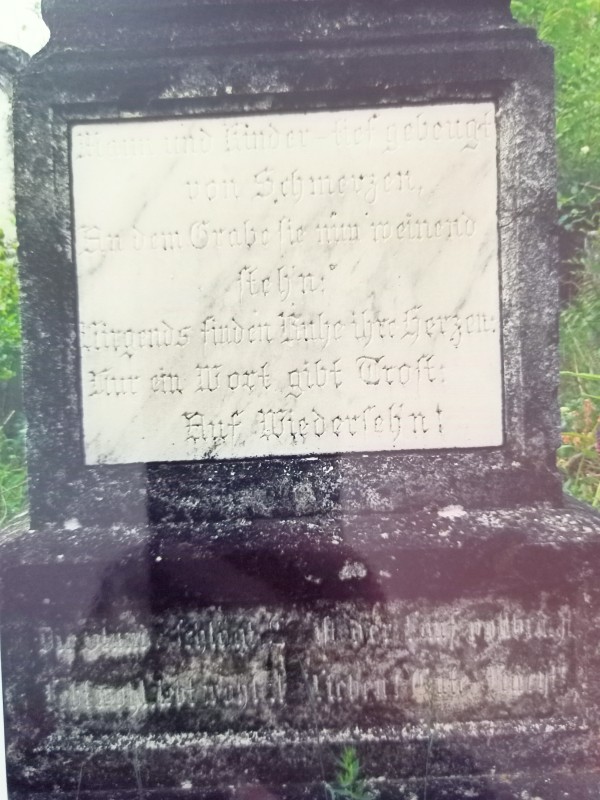 Mann und Kinder – tief gebeugt
von Schmerzen,
An dem Grabe sie nun weinend
steh'n:
Nirgends finden Ruhe ihre Herzen:
Nur ein Wort gibt Trost:
Auf Wiederseh'n!
schlägt ist der Lauf vollbracht